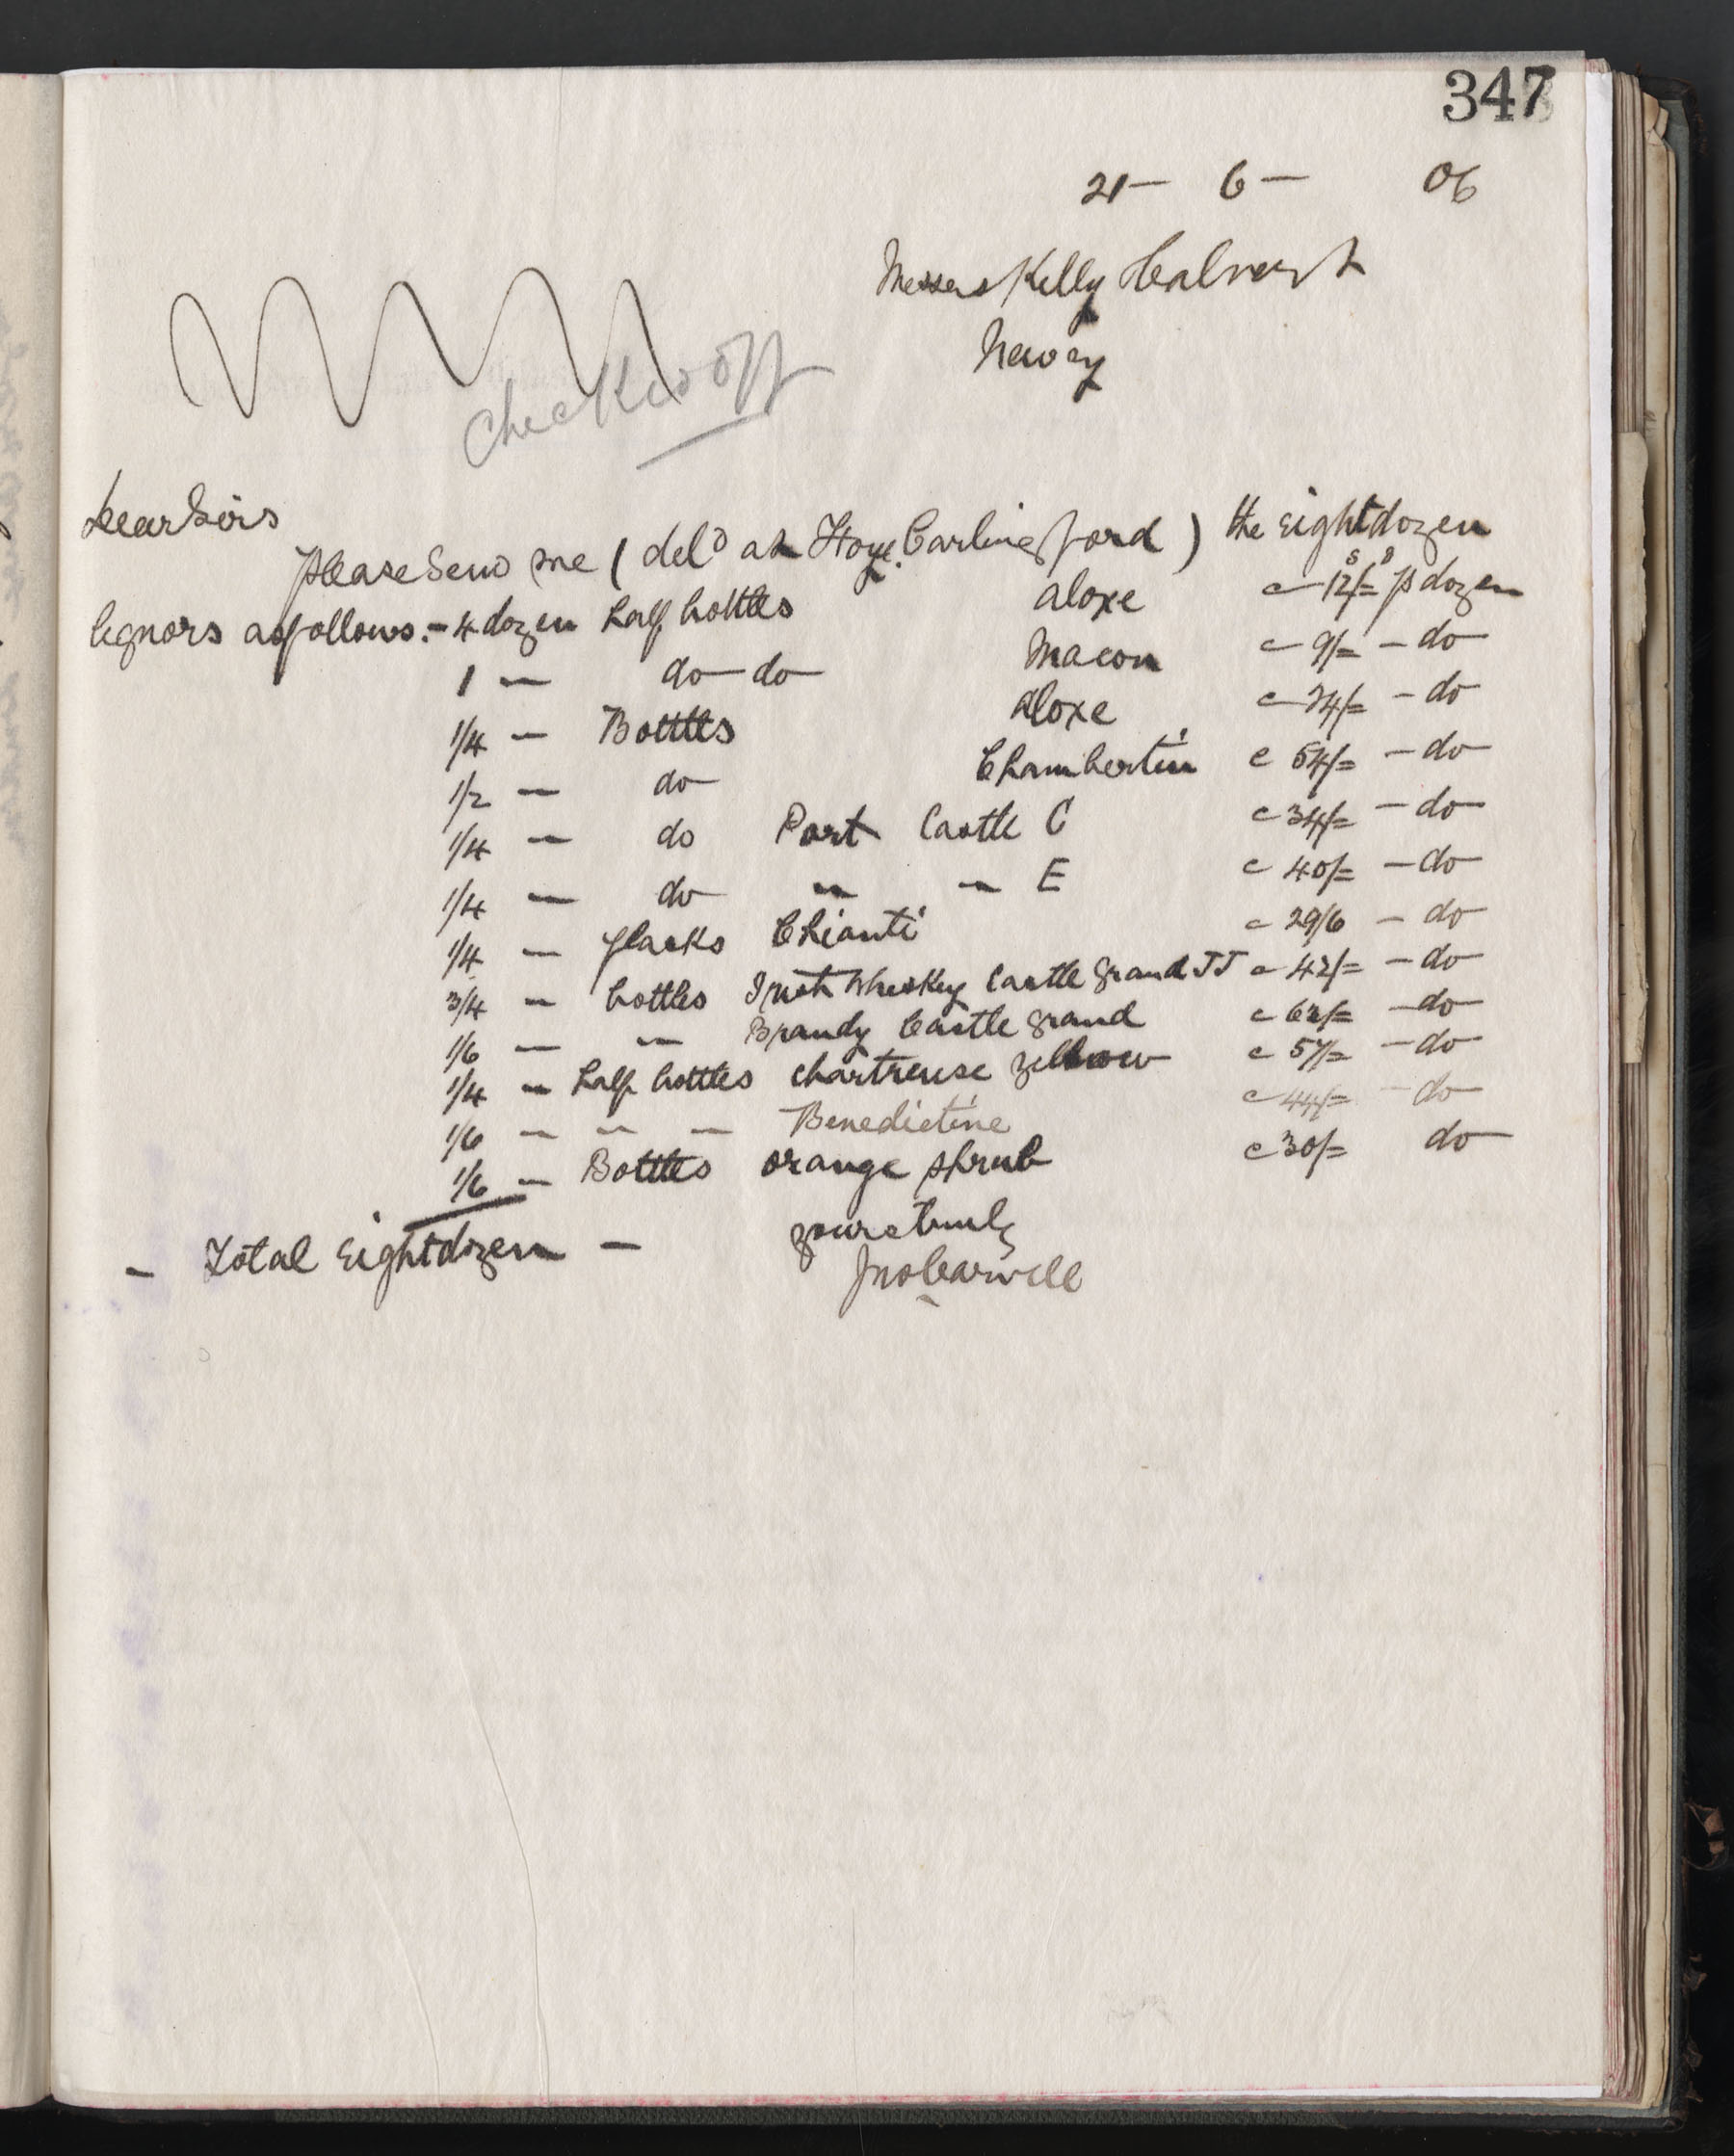 347
21 - 6 - 06
Messrs Kelly Calvert
Newry
Checked off
Dear Sirs
Please Send me ( delD at Carlingford ) the Eight dozen
liquors as follows:- 4 dozen half bottles aloxe c 12/= p dozen
1 - do do Macon c 9/= - do
1/4 - Bottles aloxe c 24/= - do
1/2 - do Chambertin c 54/= - do
1/4 - do Port Castle C c 34/= - do
1/4 - do " " E c 40/= - do
1/4 - flasks Chianti c 29/6 - do
3/4 - bottles Irish Whiskey Castle Grand JJ c 42/= - do
1/6 - " Brandy Castle Grand c 62/= - do
1/4 - half bottles Chartreuse yellow c 57/= - do
1/6 - " " Benedictine c 44/= - do
1/6 - Bottles orange shrub c 30/= do
- Total Eight dozen - yours truly
Jno Carvill